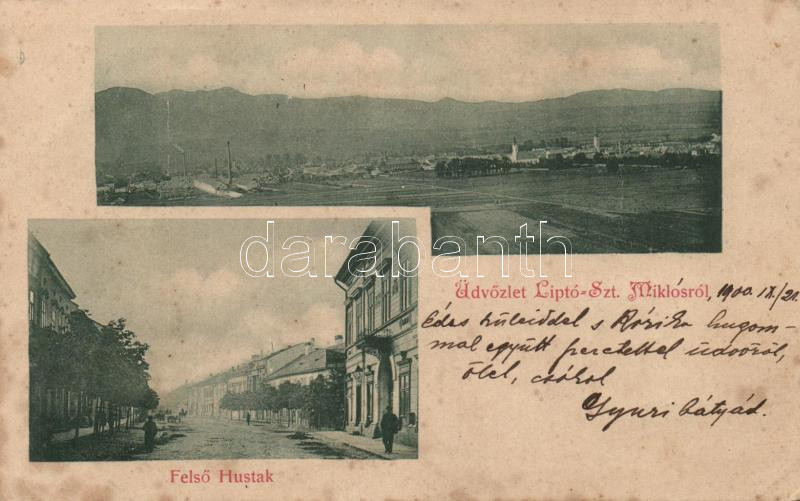 darabanth
Üdvözlet Liptó-Szt. Miklósról, 1900 IX/21
Édes szüleiddel s Rózsika hugom-
mal együtt szeretettel üdvözöl,
ölel, csókol
Gyuri bátyád.
Felső Hustak